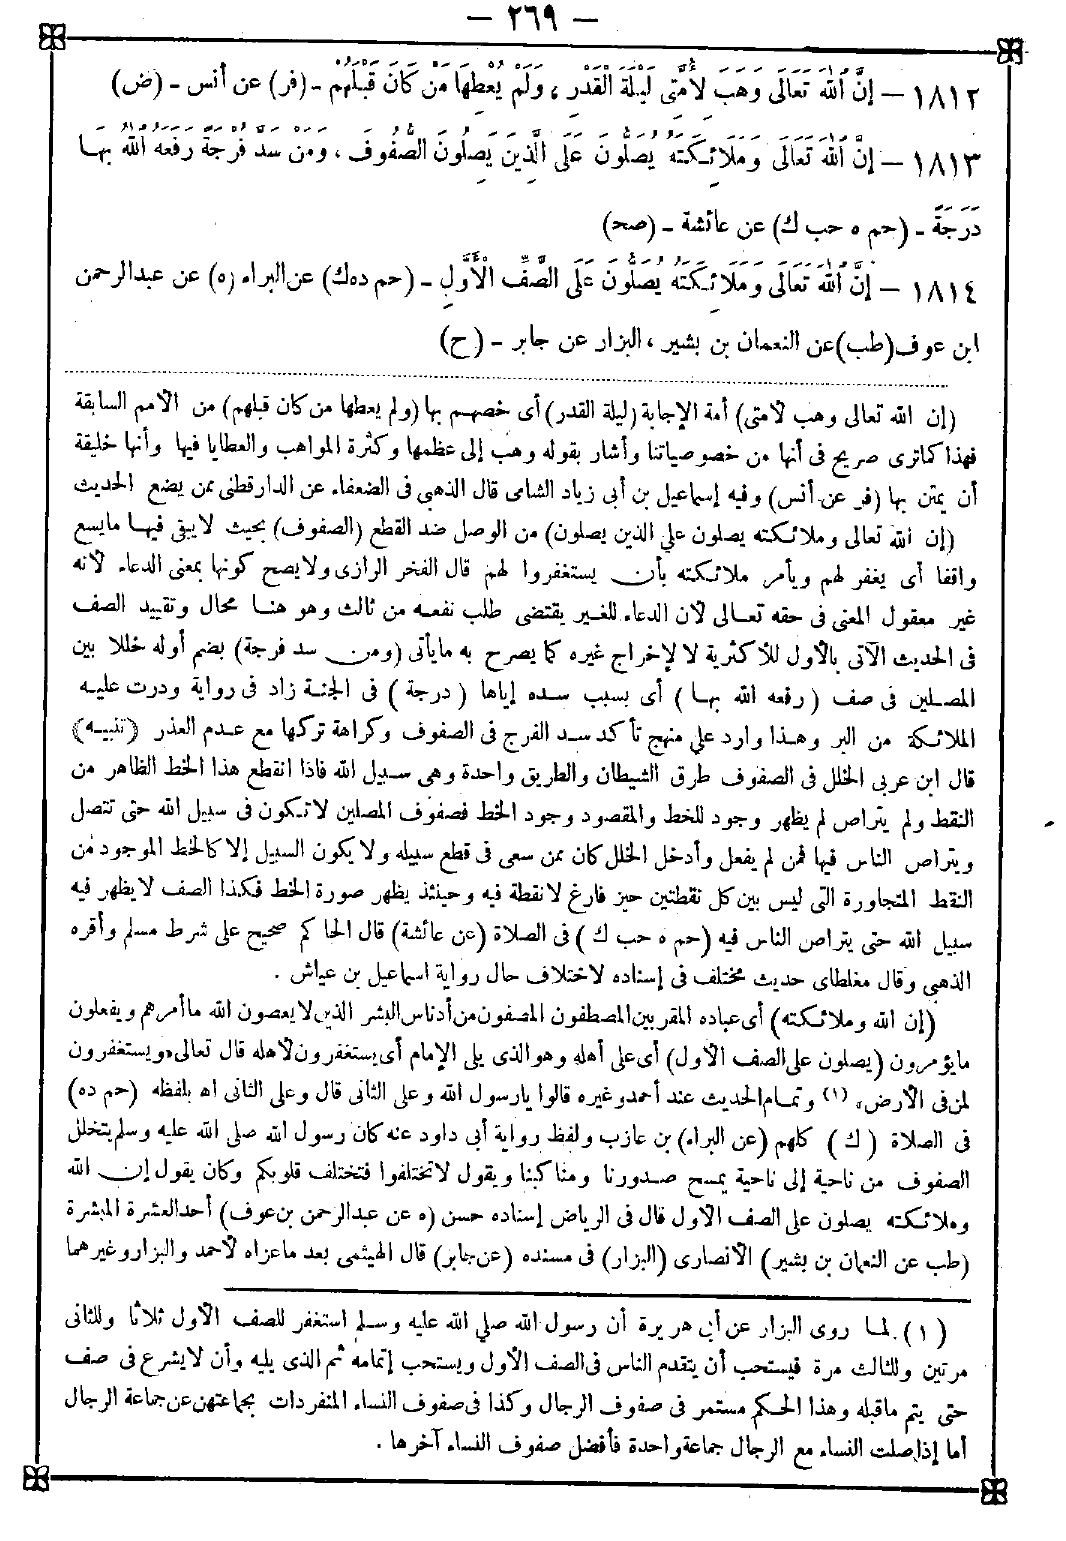 — ٢٦٩ —
١٨١٢ — إِنَّ اللّٰهَ تَعَالَى وَهَبَ لِأُمَّتِى لَيْلَةَ الْقَدْرِ ، وَلَمْ يُعْطِهَا مَنْ كَانَ قَبْلَهُمْ - (فر) عن أنس - (ض)
١٨١٣ — إِنَّ اللّٰهَ تَعَالَى وَمَلَائِكَتَهُ يُصَلُّونَ عَلَى الَّذِينَ يَصِلُونَ الصُّفُوفَ ، وَمَنْ سَدَّ فُرْجَةً رَفَعَهُ اللّٰهُ بِهَا
دَرَجَةً - (حم ه حب ك) عن عائشة - (صح)
١٨١٤ — إِنَّ اللّٰهَ تَعَالَى وَمَلَائِكَتَهُ يُصَلُّونَ عَلَى الصَّفِّ الْأَوَّلِ - (حم د ه ك) عن البراء (ه) عن عبدالرحمن
ابن عوف (طب) عن النعمان بن بشير ، البزار عن جابر - (ح)
(إن الله تعالى وهب لأمتى) أمة الإجابة (ليلة القدر) أى خصهم بها (ولم يعطها من كان قبلهم) من الأمم السابقة
فهذا كماترى صريح فى أنها من خصوصياتنا وأشار بقوله وهب إلى عظمها وكثرة المواهب والعطايا فيها وأنها خليقة
أن يمتن بها (فر عن أنس) وفيه إسماعيل بن أبى زياد الشامى قال الذهبى فى الضعفاء عن الدارقطنى ممن يضع الحديث
(إن الله تعالى وملائكته يصلون على الذين يصلون) من الوصل ضد القطع (الصفوف) بحيث لا يبقى فيها مايسع
واقفا أى يغفر لهم ويأمر ملائكته بأن يستغفروا لهم قال الفخر الرازى ولا يصح كونها بمعنى الدعاء لأنه
غير معقول المعنى فى حقه تعالى لأن الدعاء للغير يقتضى طلب نفعه من ثالث وهو هنا محال وتقييد الصف
فى الحديث الآتى بالأول للأكثرية لا لإخراج غيره كما يصرح به مايأتى (ومن سد فرجة) بضم أوله خللا بين
المصلين فى صف (رفعه الله بها) أى بسبب سده إياها (درجة) فى الجنة زاد فى رواية ودرت عليه
الملائكة من البر وهذا وارد على منهج تأكد سد الفرج فى الصفوف وكراهة تركها مع عدم العذر (تنبيه)
قال ابن عربى الخلل فى الصفوف طرق الشيطان والطريق واحدة وهى سبيل الله فاذا انقطع هذا الخط الظاهر من
النقط ولم يتراص لم يظهر وجود للخط والمقصود وجود الخط فصفوف المصلين لاتكون فى سبيل الله حتى تتصل
ويتراص الناس فيها فمن لم يفعل وأدخل الخلل كان ممن سعى فى قطع سبيله ولا يكون السبيل إلا كالخط الموجود من
النقط المتجاورة التى ليس بين كل نقطتين حيز فارغ لا نقطة فيه وحينئذ يظهر صورة الخط فكذا الصف لا يظهر فيه
سبيل الله حتى يتراص الناس فيه (حم ه حب ك) فى الصلاة (عن عائشة) قال الحاكم صحيح على شرط مسلم وأقره
الذهبى وقال مغلطاى حديث مختلف فى إسناده لاختلاف حال رواية اسماعيل بن عياش .
(إن الله وملائكته) أى عباده المقربين المصطفون المصفون من أدناس البشر الذين لا يعصون الله ما أمرهم ويفعلون
مايؤمرون (يصلون على الصف الأول) أى على أهله وهو الذى يلى الإمام أى يستغفرون لأهله قال تعالى «ويستغفرون
لمن فى الأرض» (١) وتمام الحديث عند أحمد وغيره قالوا يارسول الله وعلى الثانى قال وعلى الثانى اه بلفظه (حم ده)
فى الصلاة (ك) كلهم (عن البراء) بن عازب ولفظ رواية أبى داود عنه كان رسول الله صلى الله عليه وسلم يتخلل
الصفوف من ناحية إلى ناحية يمسح صدورنا ومناكبنا ويقول لاتختلفوا فتختلف قلوبكم وكان يقول إن الله
وملائكته يصلون على الصف الأول قال فى الرياض إسناده حسن (ه عن عبدالرحمن بن عوف) أحد العشرة المبشرة
(طب عن النعمان بن بشير) الأنصارى (البزار) فى مسنده (عن جابر) قال الهيثمى بعد ماعزاه لأحمد والبزار وغيرهما
(١) لما روى البزار عن أبى هريرة أن رسول الله صلى الله عليه وسلم استغفر للصف الأول ثلاثا وللثانى
مرتين وللثالث مرة فيستحب أن يتقدم الناس فى الصف الأول ويستحب إتمامه ثم الذى يليه وأن لا يشرع فى صف
حتى يتم ماقبله وهذا الحكم مستمر فى صفوف الرجال وكذا فى صفوف النساء المنفردات بجماعتهن عن جماعة الرجال
أما إذا صلت النساء مع الرجال جماعة واحدة فأفضل صفوف النساء آخرها .